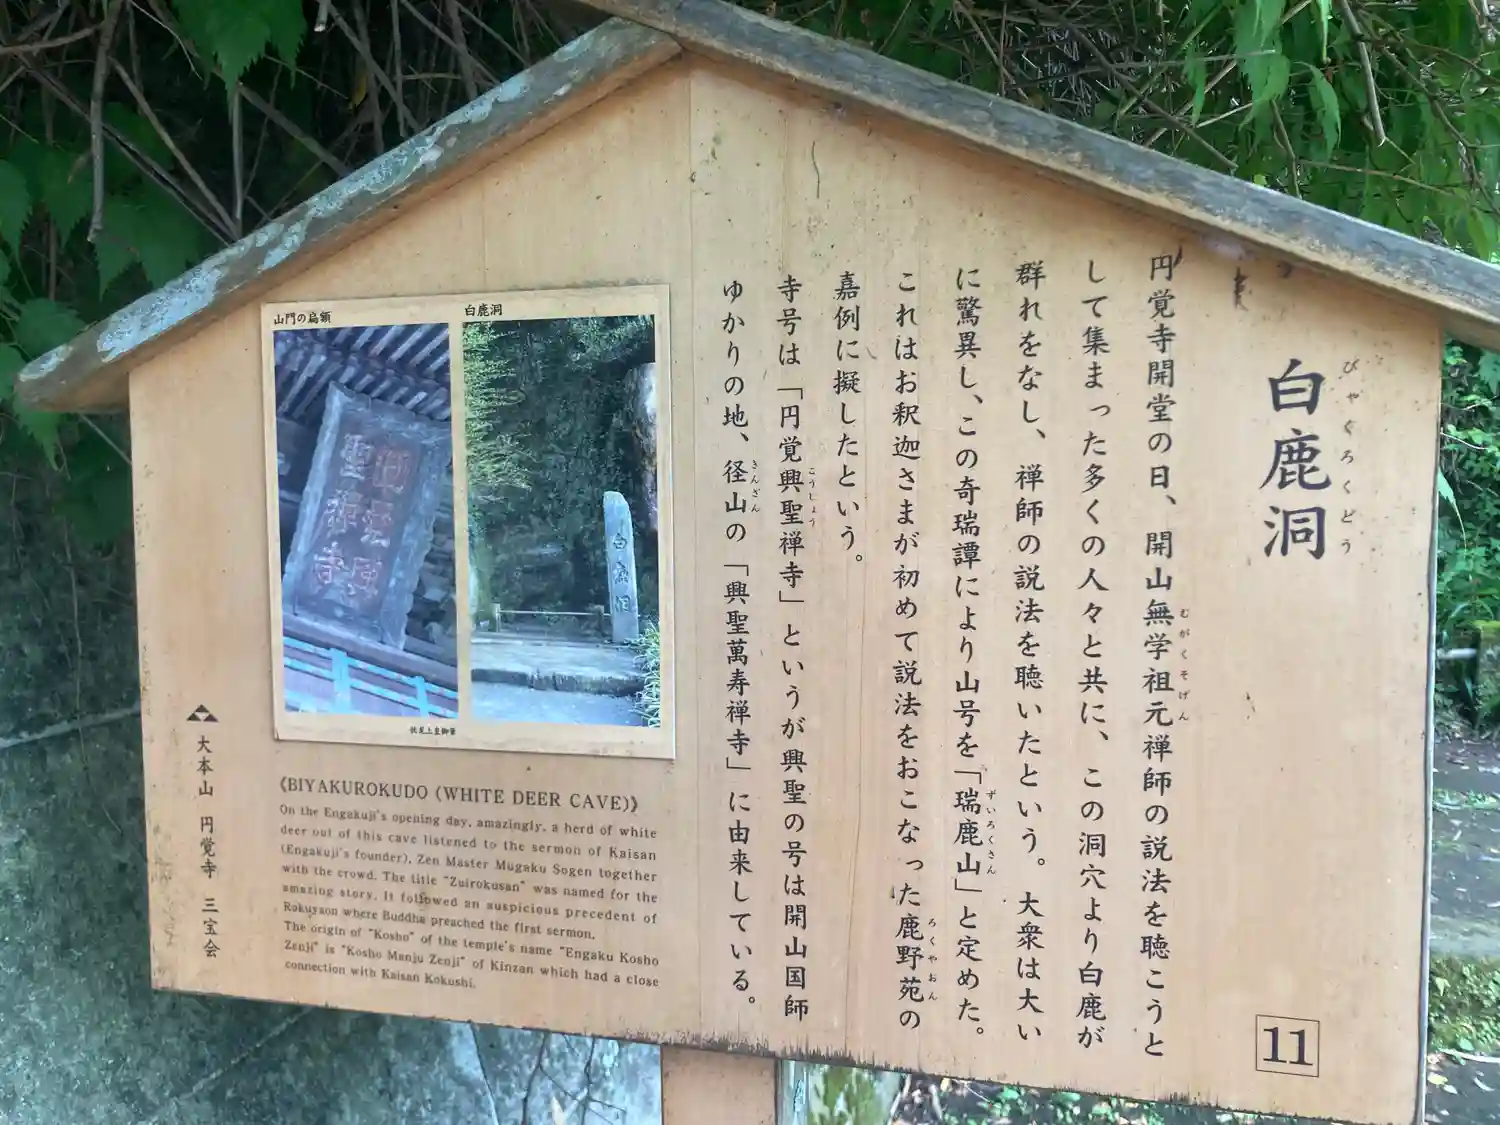 白鹿洞
びゃくろくどう
円覚寺開堂の日、開山無学祖元禅師の説法を聴こうと
むがくそげん
して集まった多くの人々と共に、この洞穴より白鹿が
群れをなし、禅師の説法を聴いたという。大衆は大い
に驚異し、この奇瑞譚により山号を「瑞鹿山」と定めた。
ずいろくさん
これはお釈迦さまが初めて説法をおこなった鹿野苑の
ろくやおん
嘉例に擬したという。
寺号は「円覚興聖禅寺」というが興聖の号は開山国師
こうしょう
ゆかりの地、径山の「興聖萬寿禅寺」に由来している。
きんざん
11
山門の扁額
白鹿洞
白鹿洞
伏見上皇御筆
《BIYAKUROKUDO (WHITE DEER CAVE)》
On the Engakuji's opening day, amazingly, a herd of white
deer out of this cave listened to the sermon of Kaisan
(Engakuji's founder), Zen Master Mugaku Sogen together
with the crowd. The title "Zuirokusan" was named for the
amazing story. It followed an auspicious precedent of
Rokuyaon where Buddha preached the first sermon.
The origin of "Kosho" of the temple's name "Engaku Kosho
Zenji" is "Kosho Manju Zenji" of Kinzan which had a close
connection with Kaisan Kokushi.
大本山 円覚寺 三宝会